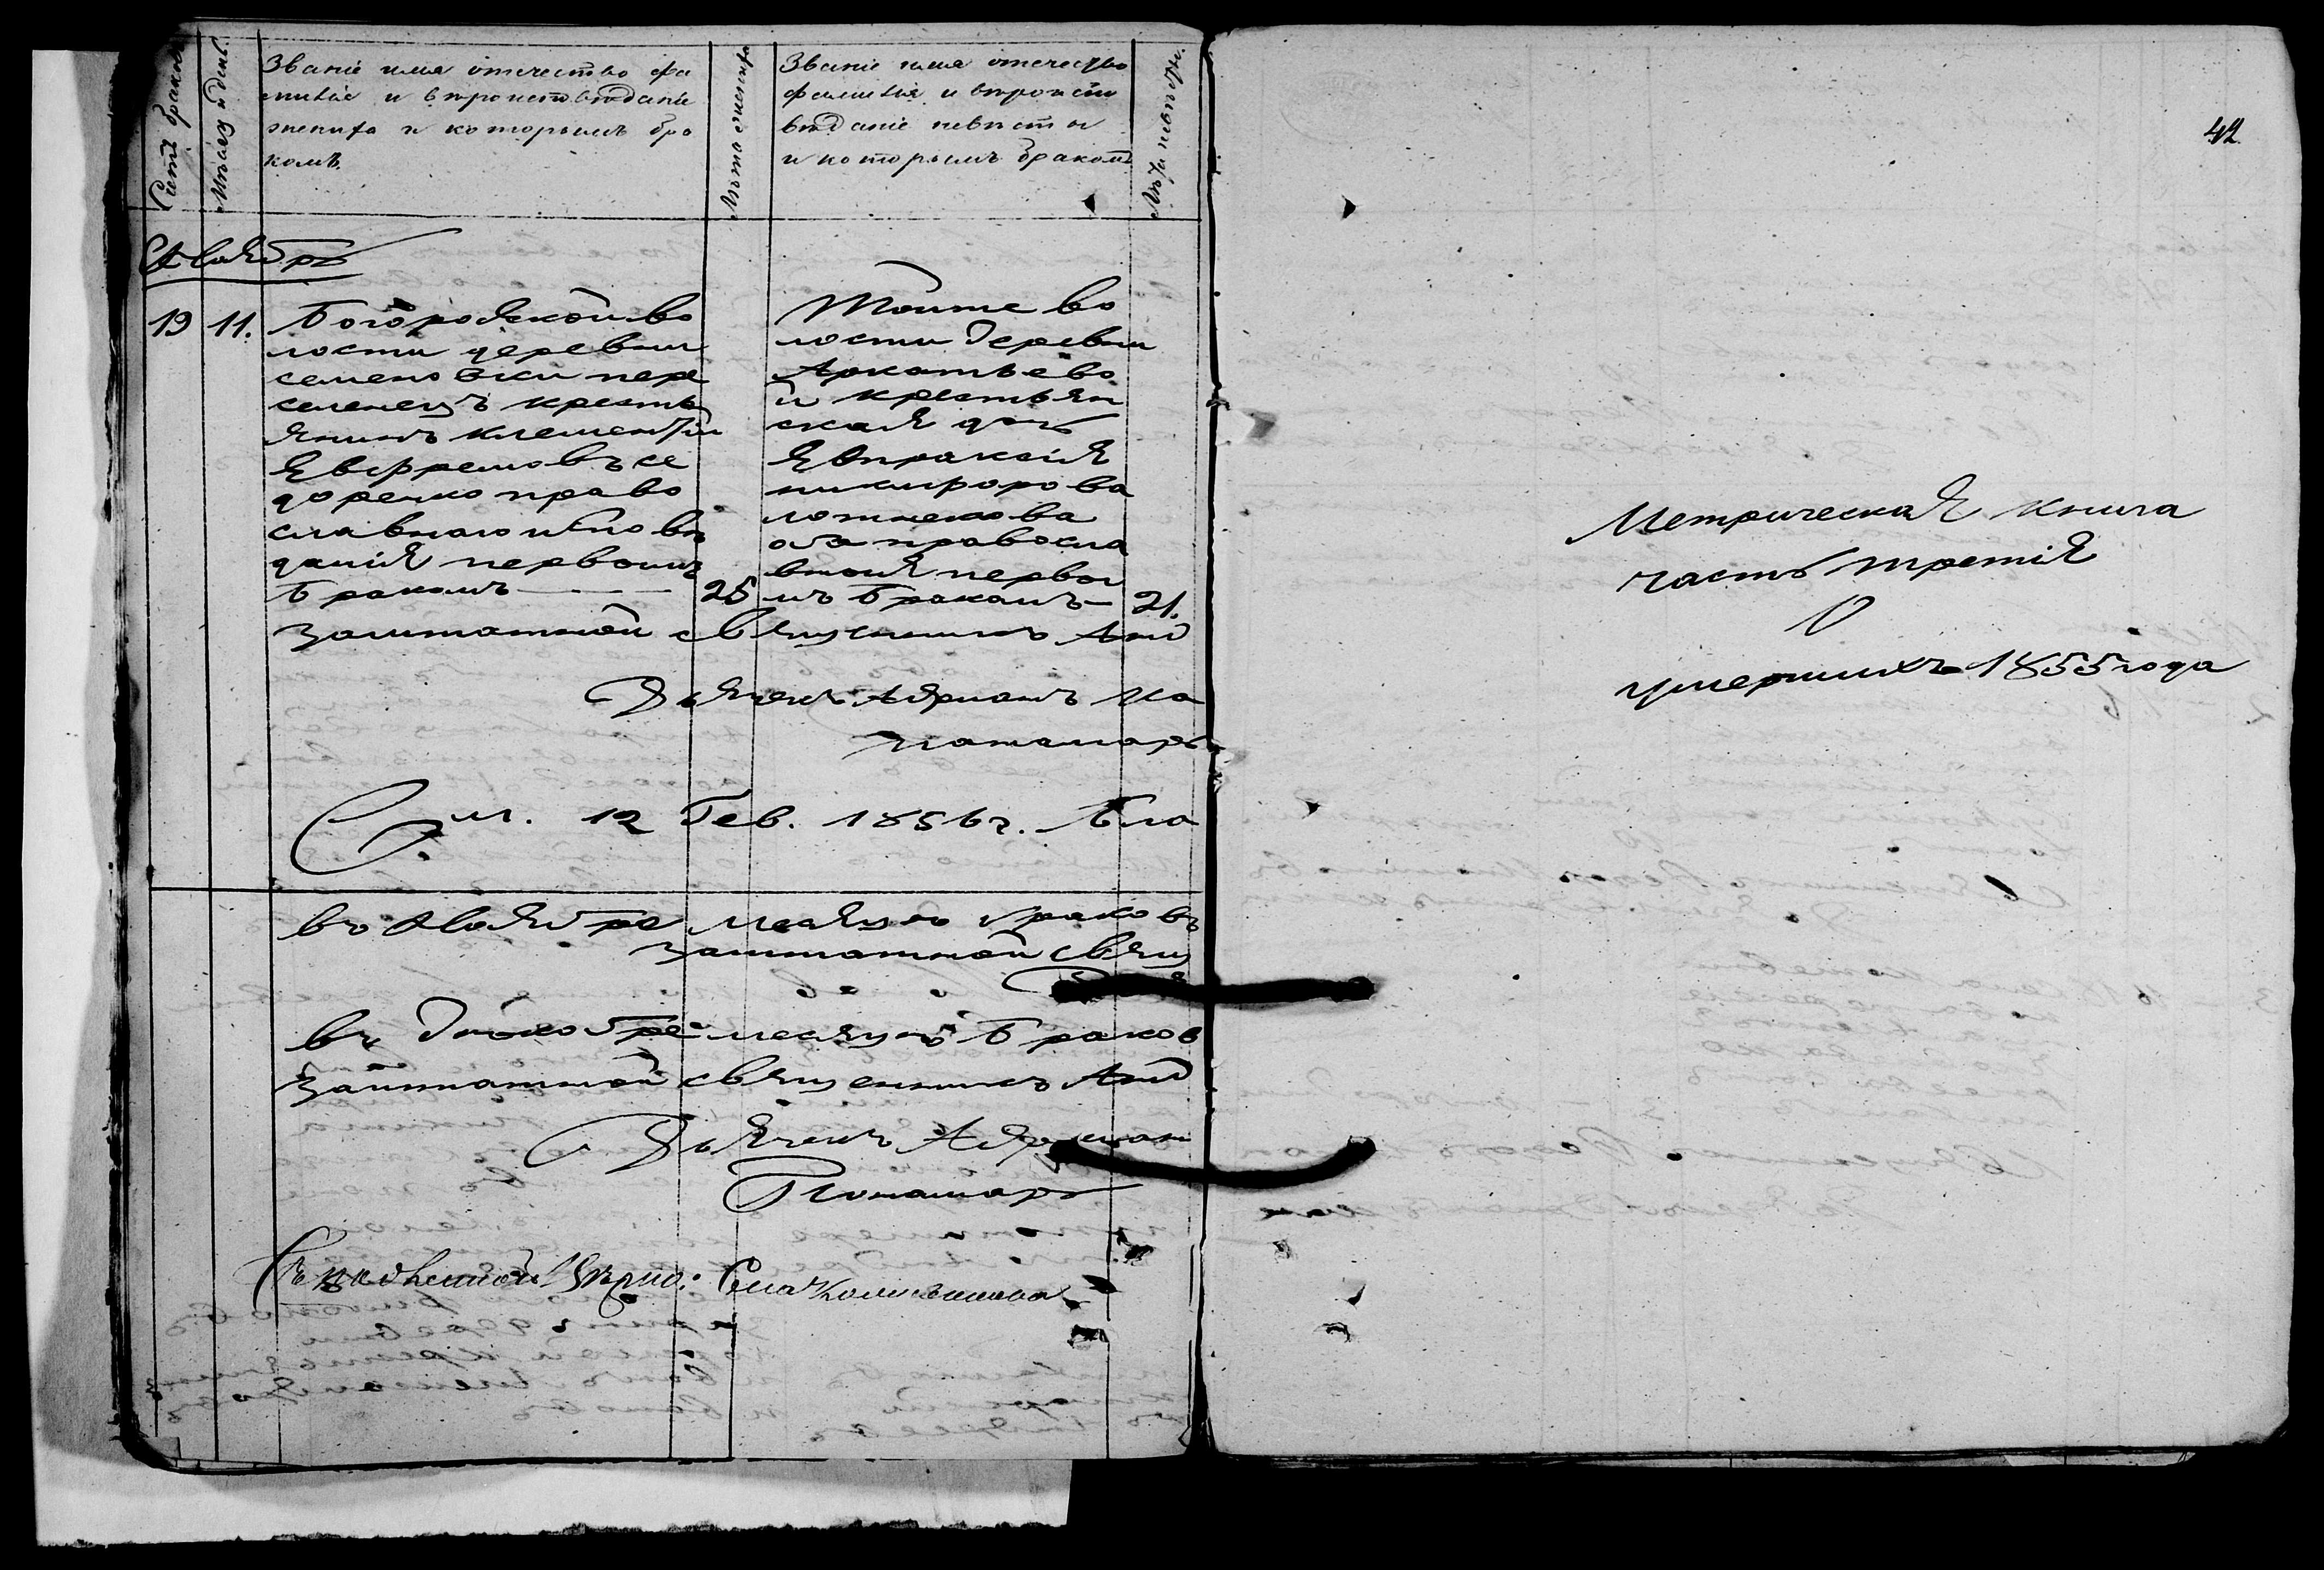 Счетъ браковъ
Мѣсяцъ и день.
Званіе имя отечество фа
миліе и вкроисповѣданіе
жениха и которымъ бра
комъ.
Лѣта жениха
Званіе имя отечество
фамилія и вкроиспо
вѣданіе невѣсты
и которымъ бракомъ
Лѣта невѣсты.
Ноября
19
11.
Богородской во
лости деревни
семеновки пере
селенецъ кресть
янинъ клементий
Евфремовъ се
доренко право
славнаго исповѣ
данія первымъ
бракомъ
25
Тойже во
лости деревни
Аркатьево
й крестьян
ская дочь
Евпраксия
никифорова
оба правосла
вныя первы
мъ бракомъ
21.
Заштатной священникъ Анд
Дьячекъ Адрианъ Ка
понамарь
См. 12 Фев. 1856 г. Бла
въ Ноябре месяце браковъ
заштатной свящ
въ Декабре месяце браков
Заштатной священникъ Анд
Дьячекъ Адриан
Понамарь
Съ подлинной вѣрно:
42.
Метрическая книга
часть третия
О
умершихъ 1855 года